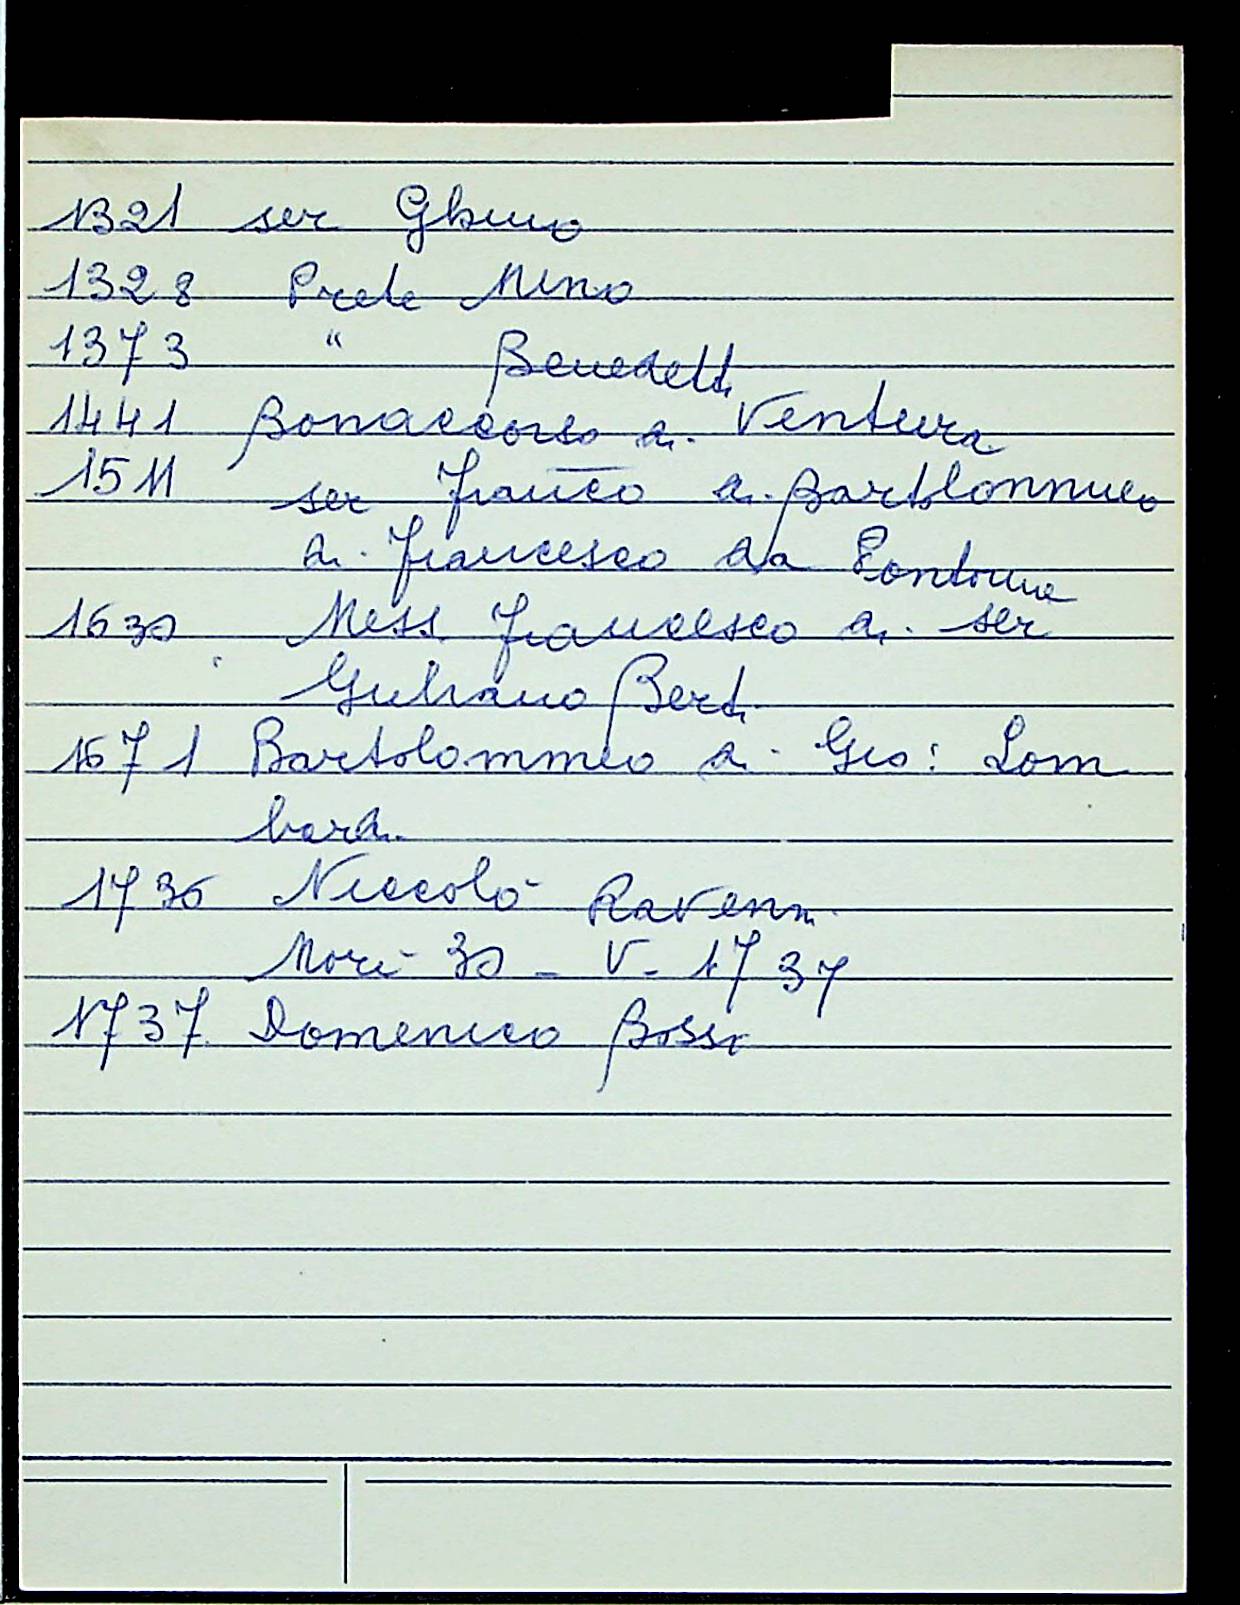 1321 ser Ghino
1328 Prete Mino
1373 " Benedetti
1441 Bonaccorso di Ventura
1511 ser Franc̅o di Bartolommeo
di Francesco da Pontorme
1630 Mess. Francesco di ser
Giuliano Berti
1671 Bartolommeo di Gio: Lom
bardi
1736 Niccolò Ravenni
Morì 30 - V - 1737
1737 Domenico Bossi